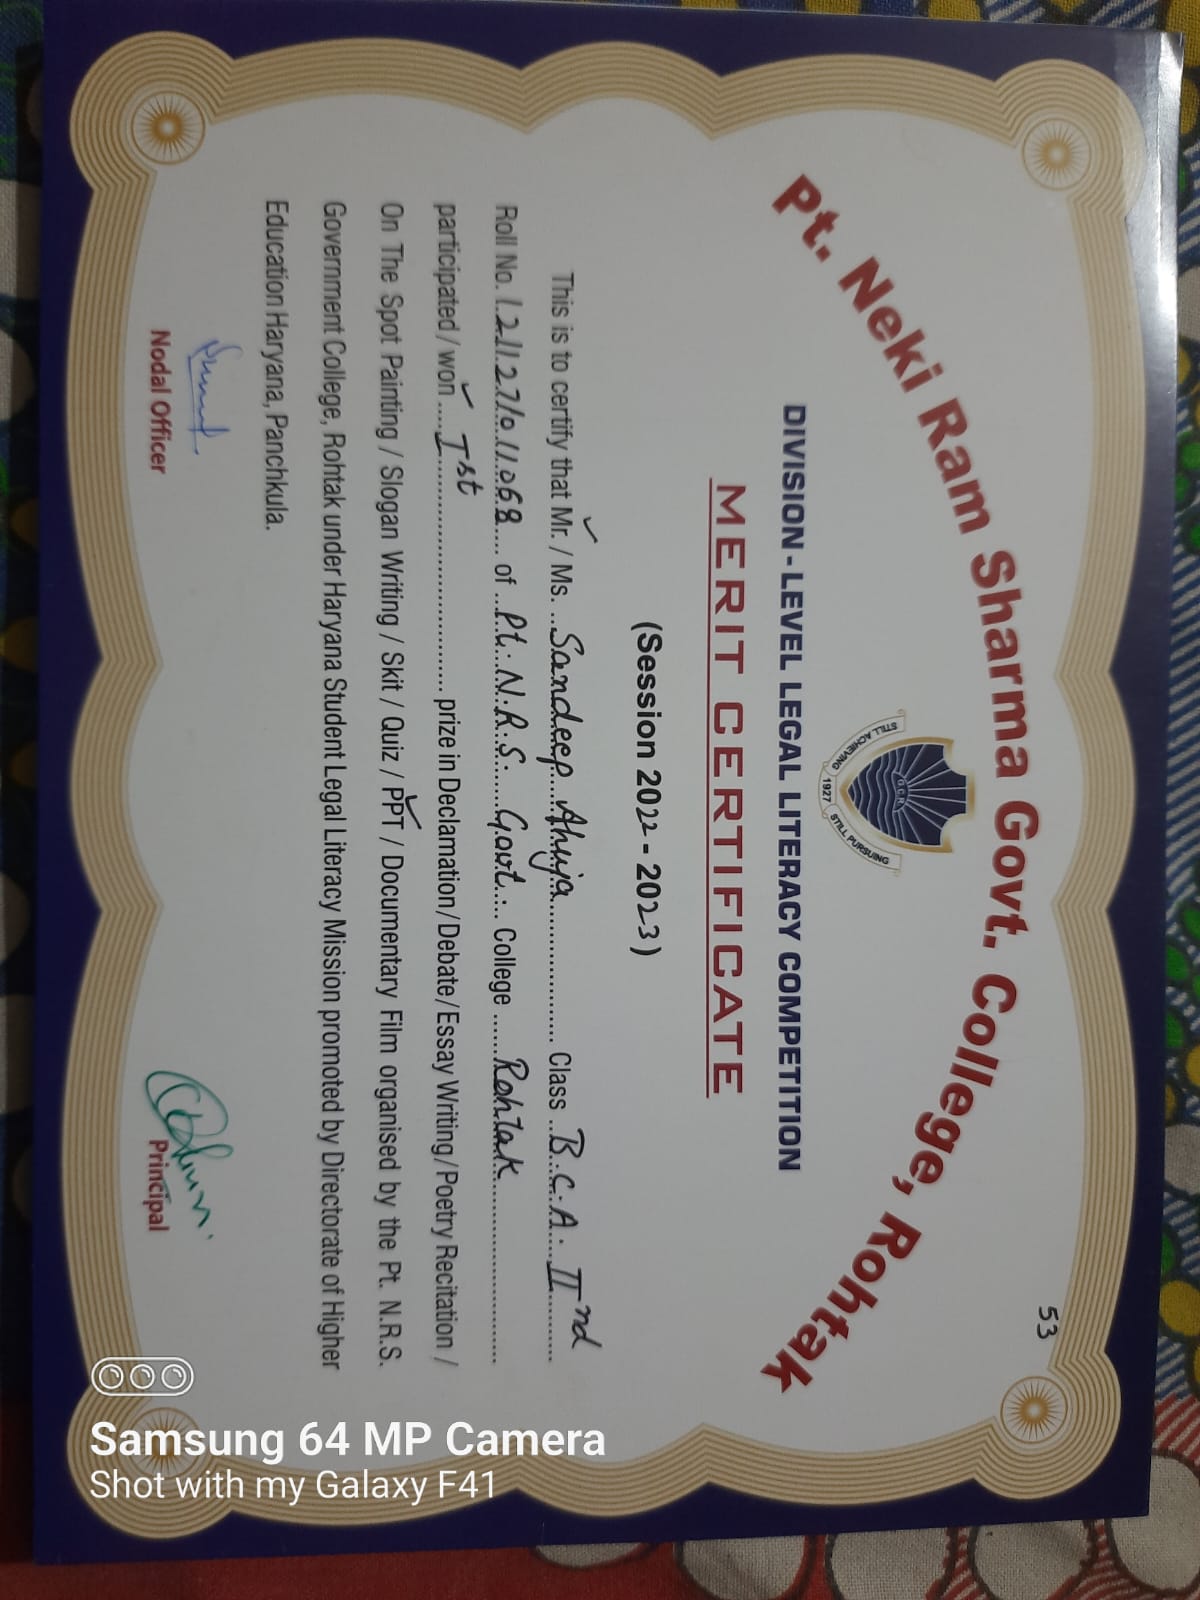 53
Pt. Neki Ram Sharma Govt. College, Rohtak
G.C.R.
STILL ACHIEVING 1927 STILL PURSUING
DIVISION-LEVEL LEGAL LITERACY COMPETITION
MERIT CERTIFICATE
(Session 2022 - 2023)
This is to certify that Mr. / Ms. Sandeep Ahuja Class B.C.A. IInd
Roll No. 1211271011068 of Pt. N.R.S. Govt. College Rohtak
participated / won Ist prize in Declamation / Debate / Essay Writing / Poetry Recitation /
On The Spot Painting / Slogan Writing / Skit / Quiz / PPT / Documentary Film organised by the Pt. N.R.S.
Government College, Rohtak under Haryana Student Legal Literacy Mission promoted by Directorate of Higher
Education Haryana, Panchkula.
Nodal Officer
Principal
Samsung 64 MP Camera
Shot with my Galaxy F41